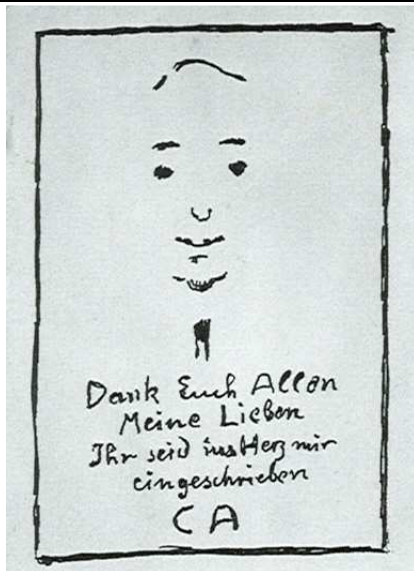 Dank Euch Allen
Meine Lieben
Ihr seid ins Herz mir
eingeschrieben
CA